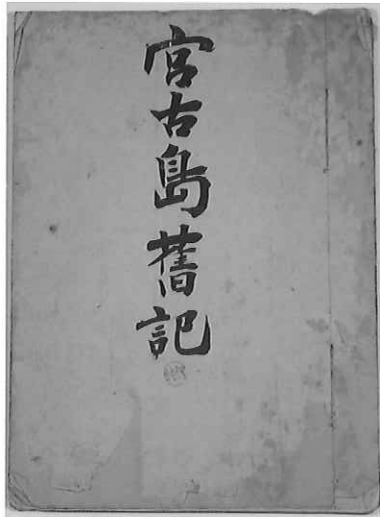 宮古島舊記